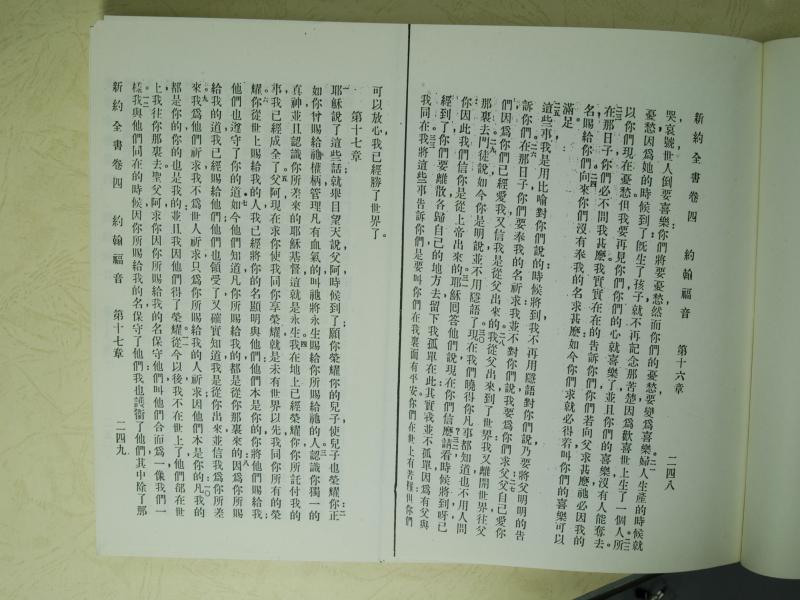 新約全書卷四 約翰福音 第十六章 二四八
哭哀號世人倒要喜樂你們將要憂愁然而你們的憂愁要變爲喜樂婦人生產的時候就
憂愁因爲她的時候到了旣生了孩子就不再記念那苦楚因爲歡喜世上生了一個人所
以你們現在憂愁但我要再見你們你們的心就喜樂了並且你們的喜樂沒有人能奪去
在那日子你們必不問我甚麼我實實在在的告訴你們你們若向父求甚麼祂必因我的
名賜給你們向來你們沒有奉我的名求甚麼如今你們求就必得着叫你們的喜樂可以
滿足
這些事我是用比喻對你們說的時候將到我不再用隱語對你們說乃要將父明明的告
訴你們在那日子你們要奉我的名祈求我並不對你們說我要爲你們求父父自己愛你
們因爲你們已經愛我又信我是從父出來的我從父出來到了世界我又離開世界往父
那裏去門徒說如今你是明說並不用隱語了現在我們曉得你凡事都知道也不用人問
你因此我們信你是從上帝出來的耶穌囘答他們說現在你們信麼請看時候將到呀已
經到了你們要離散各歸自己的地方去留下我孤單在此其實我並不孤單因爲有父與
我同在我將這些事告訴你們是要叫你們在我裏面有平安你們在世上有苦難但你們
可以放心我已經勝了世界了
第十七章
耶穌說了這些話就舉目望天說父阿時候到了願你榮耀你的兒子使兒子也榮耀你正
如你曾賜給祂權柄管理凡有血氣的叫祂將永生賜給你所賜給祂的人認識你獨一的
真神並且認識你所差來的耶穌基督這就是永生我在地上已經榮耀你你所託付我的
事我已經成全了父阿現在求你使我同你享榮耀就是未有世界以先我同你所有的榮
耀你從世上賜給我的人我已經將你的名顯明與他們他們本是你的你將他們賜給我
他們也遵守了你的道如今他們知道凡你所賜給我的都是從你那裏來的因爲你所賜
給我的道我已經賜給他們他們也領受了又確實知道我是從你出來並信我爲你所差
來我爲他們祈求我不爲世人祈求只爲你所賜給我的人祈求因他們本是你的凡我的
都是你的你的也是我的並且我因他們得了榮耀從今以後我不在世上了他們卻在世
上我往你那裏去聖父阿求你因你所賜給我的名保守他們叫他們合而爲一像我們一
樣我與他們同在的時候因你所賜給我的名保守了他們我也護衞了他們其中除了那
新約全書卷四 約翰福音 第十七章 二四九